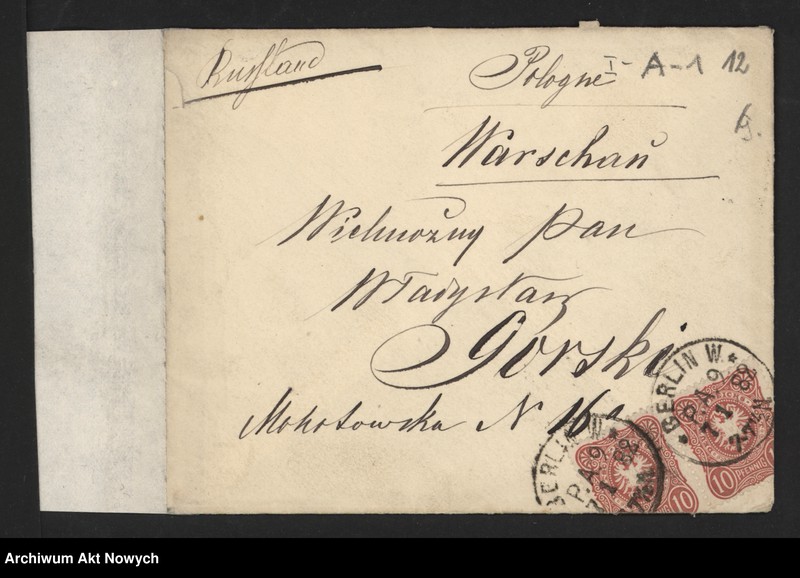 Russland
Pologne I- A-1 12
Warschau
Wielmożny Pan
Władysław
Górski
Mokotowska N 16
BERLIN W.
P.A. 9
7 1 82
7-8 N
BERLIN W.
P.A. 9
7 1 82
10 PFENNIG
10
Archiwum Akt Nowych